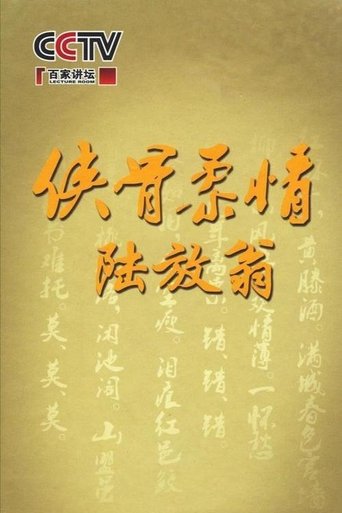 CCTV
百家讲坛
LECTURE ROOM
侠骨柔情
陆放翁
黄縢酒 满城春色宫墙
情薄。一怀愁
错、错、错
瘦。泪痕红浥鲛
闲池阁。山盟虽
书难托。莫、莫、莫。